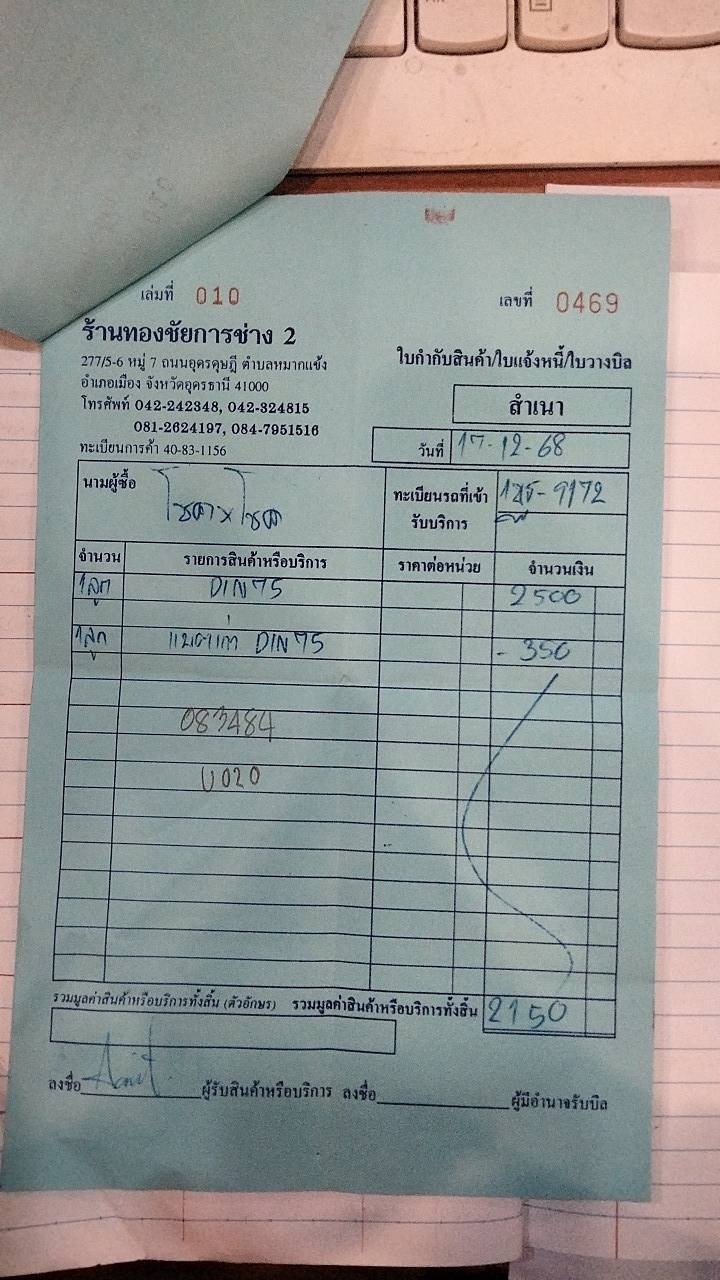 เล่มที่ 010
เลขที่ 0469
ร้านทองชัยการช่าง 2
277/5-6 หมู่ 7 ถนนอุดรดุษฎี ตำบลหมากแข้ง
อำเภอเมือง จังหวัดอุดรธานี 41000
โทรศัพท์ 042-242348, 042-324815
081-2624197, 084-7951516
ทะเบียนการค้า 40-83-1156
ใบกำกับสินค้า/ใบแจ้งหนี้/ใบวางบิล
สำเนา
วันที่ 17-12-68
นามผู้ซื้อ
ทะเบียนรถที่เข้ารับบริการ 9172
จำนวน รายการสินค้าหรือบริการ ราคาต่อหน่วย จำนวนเงิน
1ลูก DIN 75 2500
1ลูก แบตเก่า DIN 75 - 350
083484
U020
รวมมูลค่าสินค้าหรือบริการทั้งสิ้น (ตัวอักษร) รวมมูลค่าสินค้าหรือบริการทั้งสิ้น 2150
ลงชื่อ ผู้รับสินค้าหรือบริการ ลงชื่อ ผู้มีอำนาจรับบิล